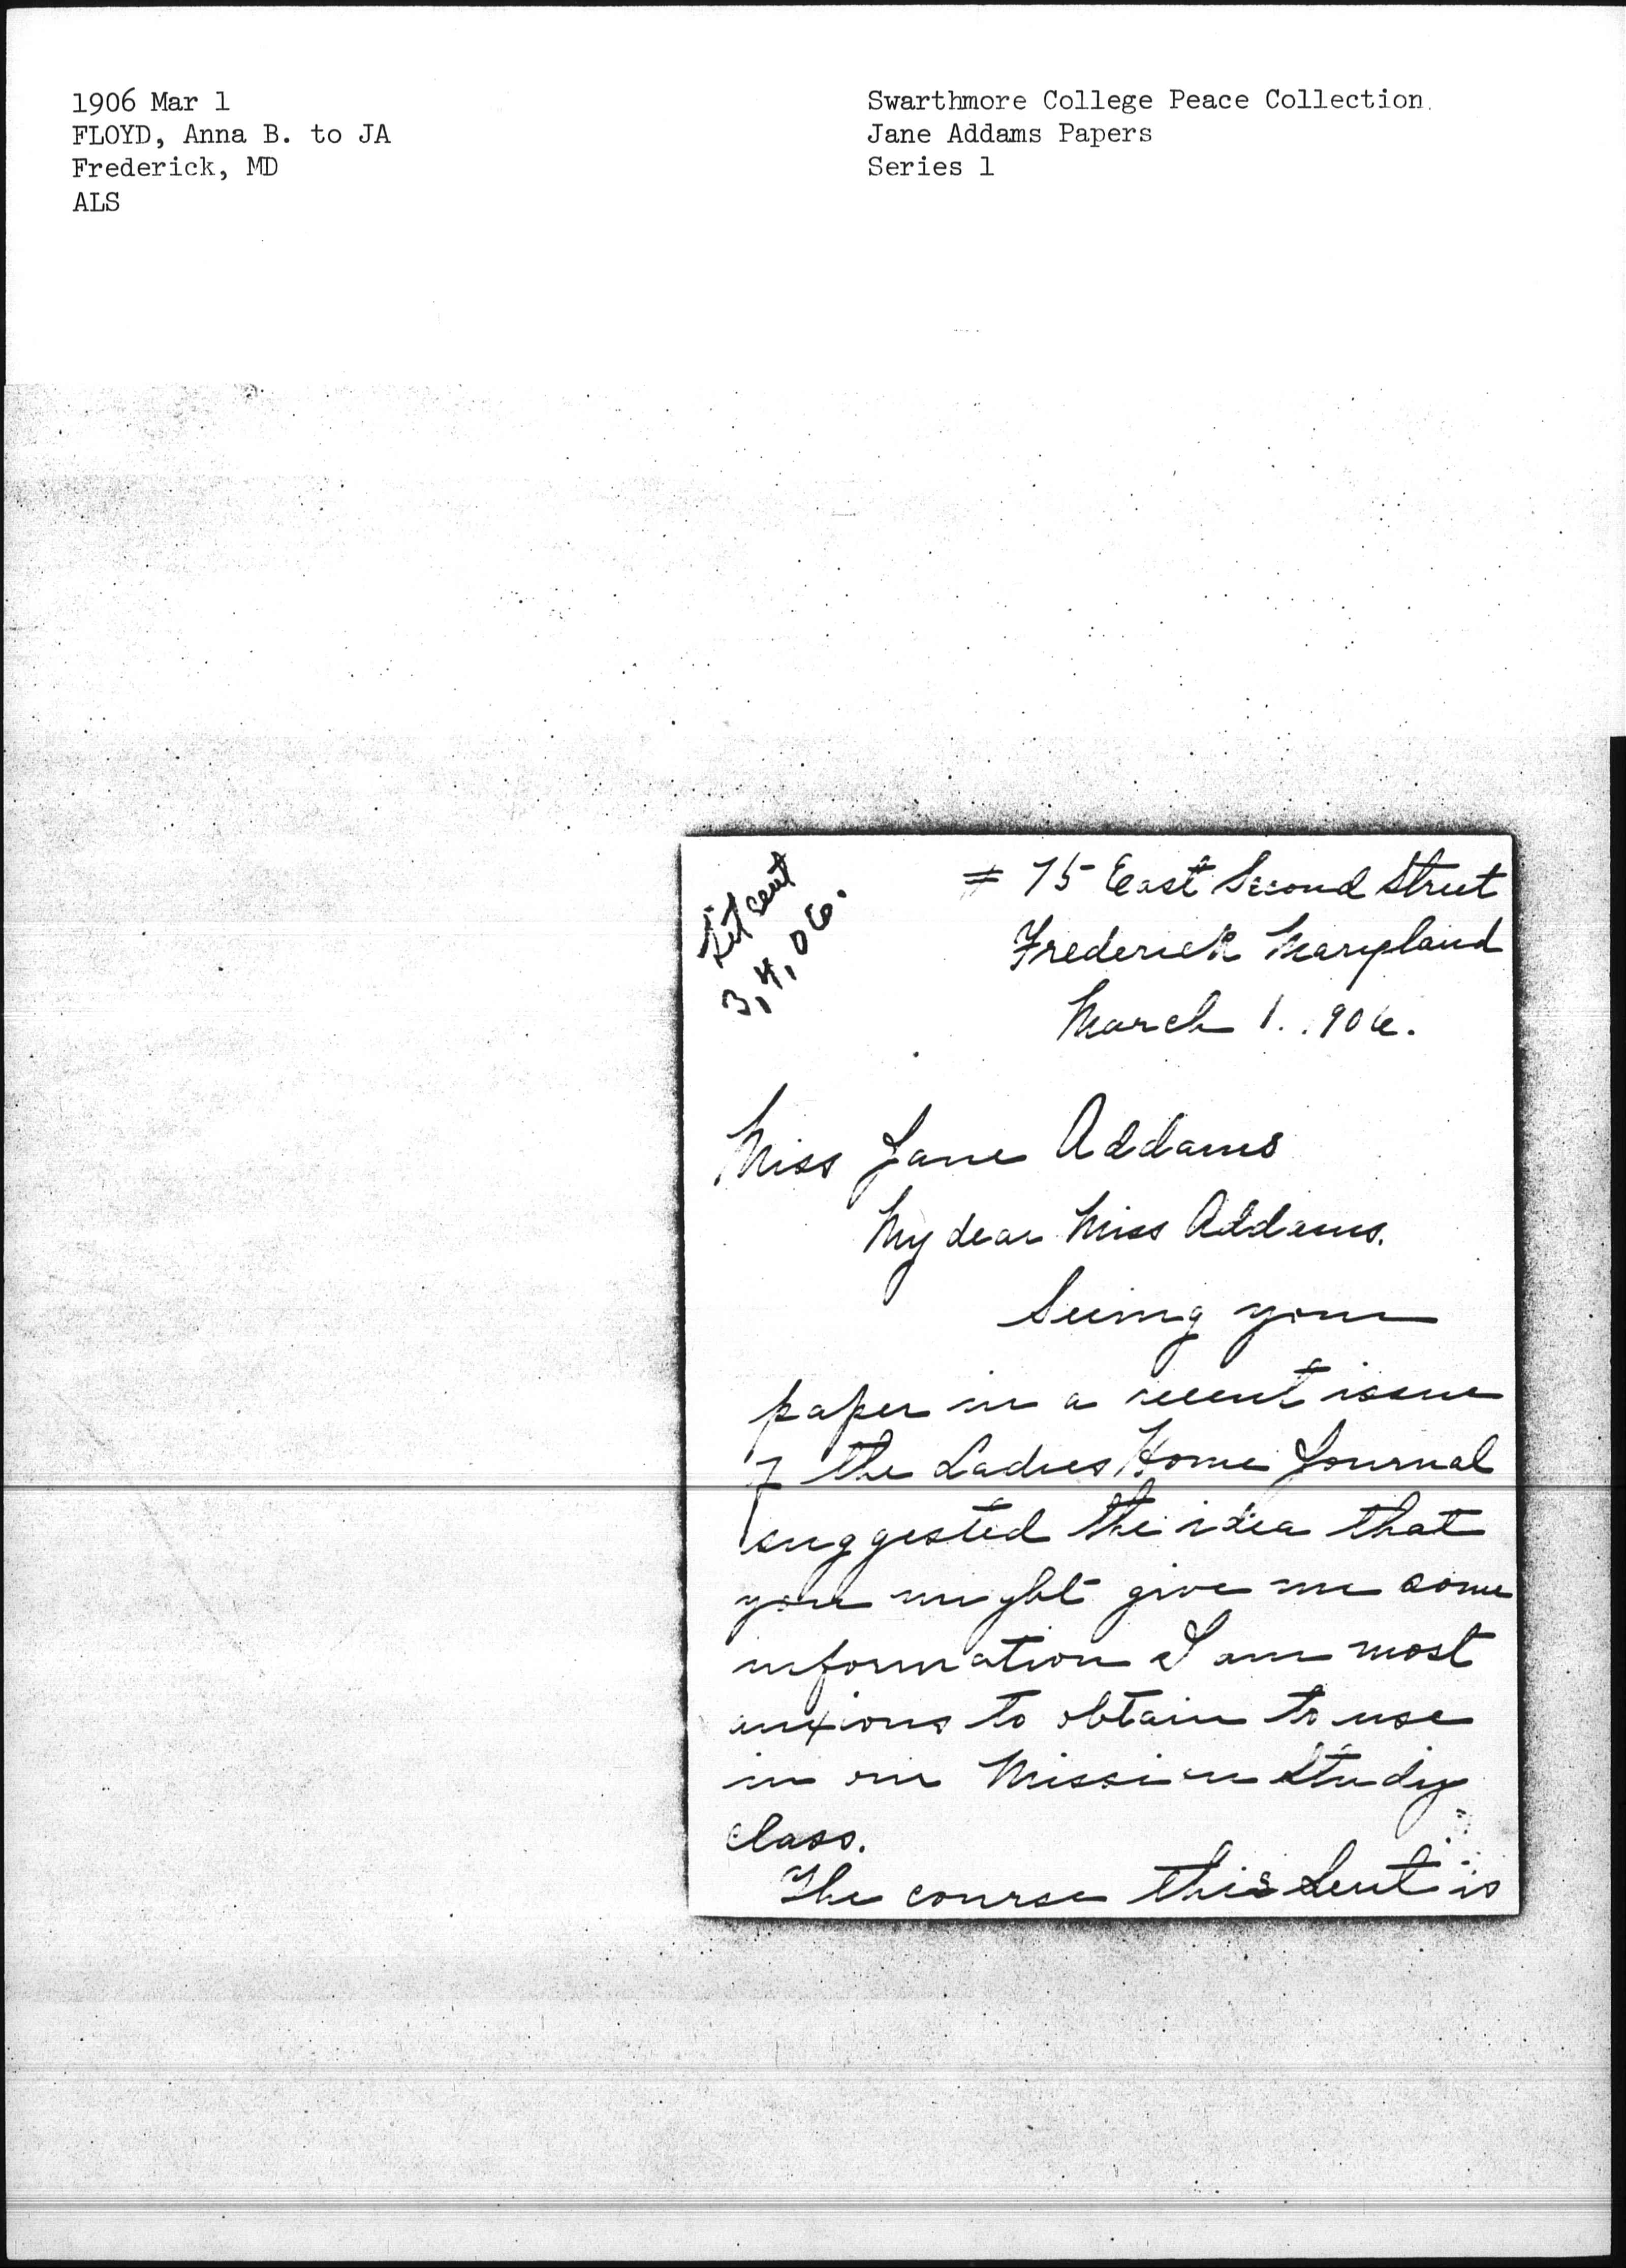 1906 Mar 1
FLOYD, Anna B. to JA
Frederick, MD
ALS
Swarthmore College Peace Collection
Jane Addams Papers
Series 1
Lit sent
3,4,06.
# 75 East Second Street
Frederick Maryland
March 1. .906.
Miss Jane Addams
My dear Miss Addams.
Seeing your
paper in a recent issue
of the Ladies Home Journal
suggested the idea that
you might give me some
information I am most
anxious to obtain to use
in our Mission Study
class.
The course this Lent is